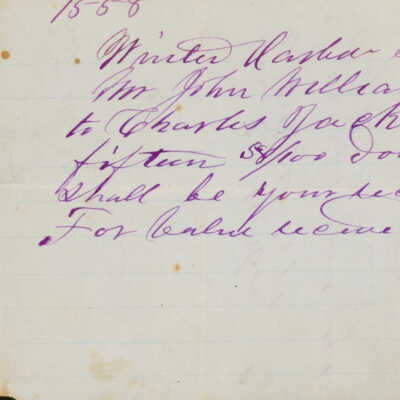 1558
Winter Harbor
Mr John Willia
to Charles Jack
fifteen 58/100 do
shall be your rec
For Value receive